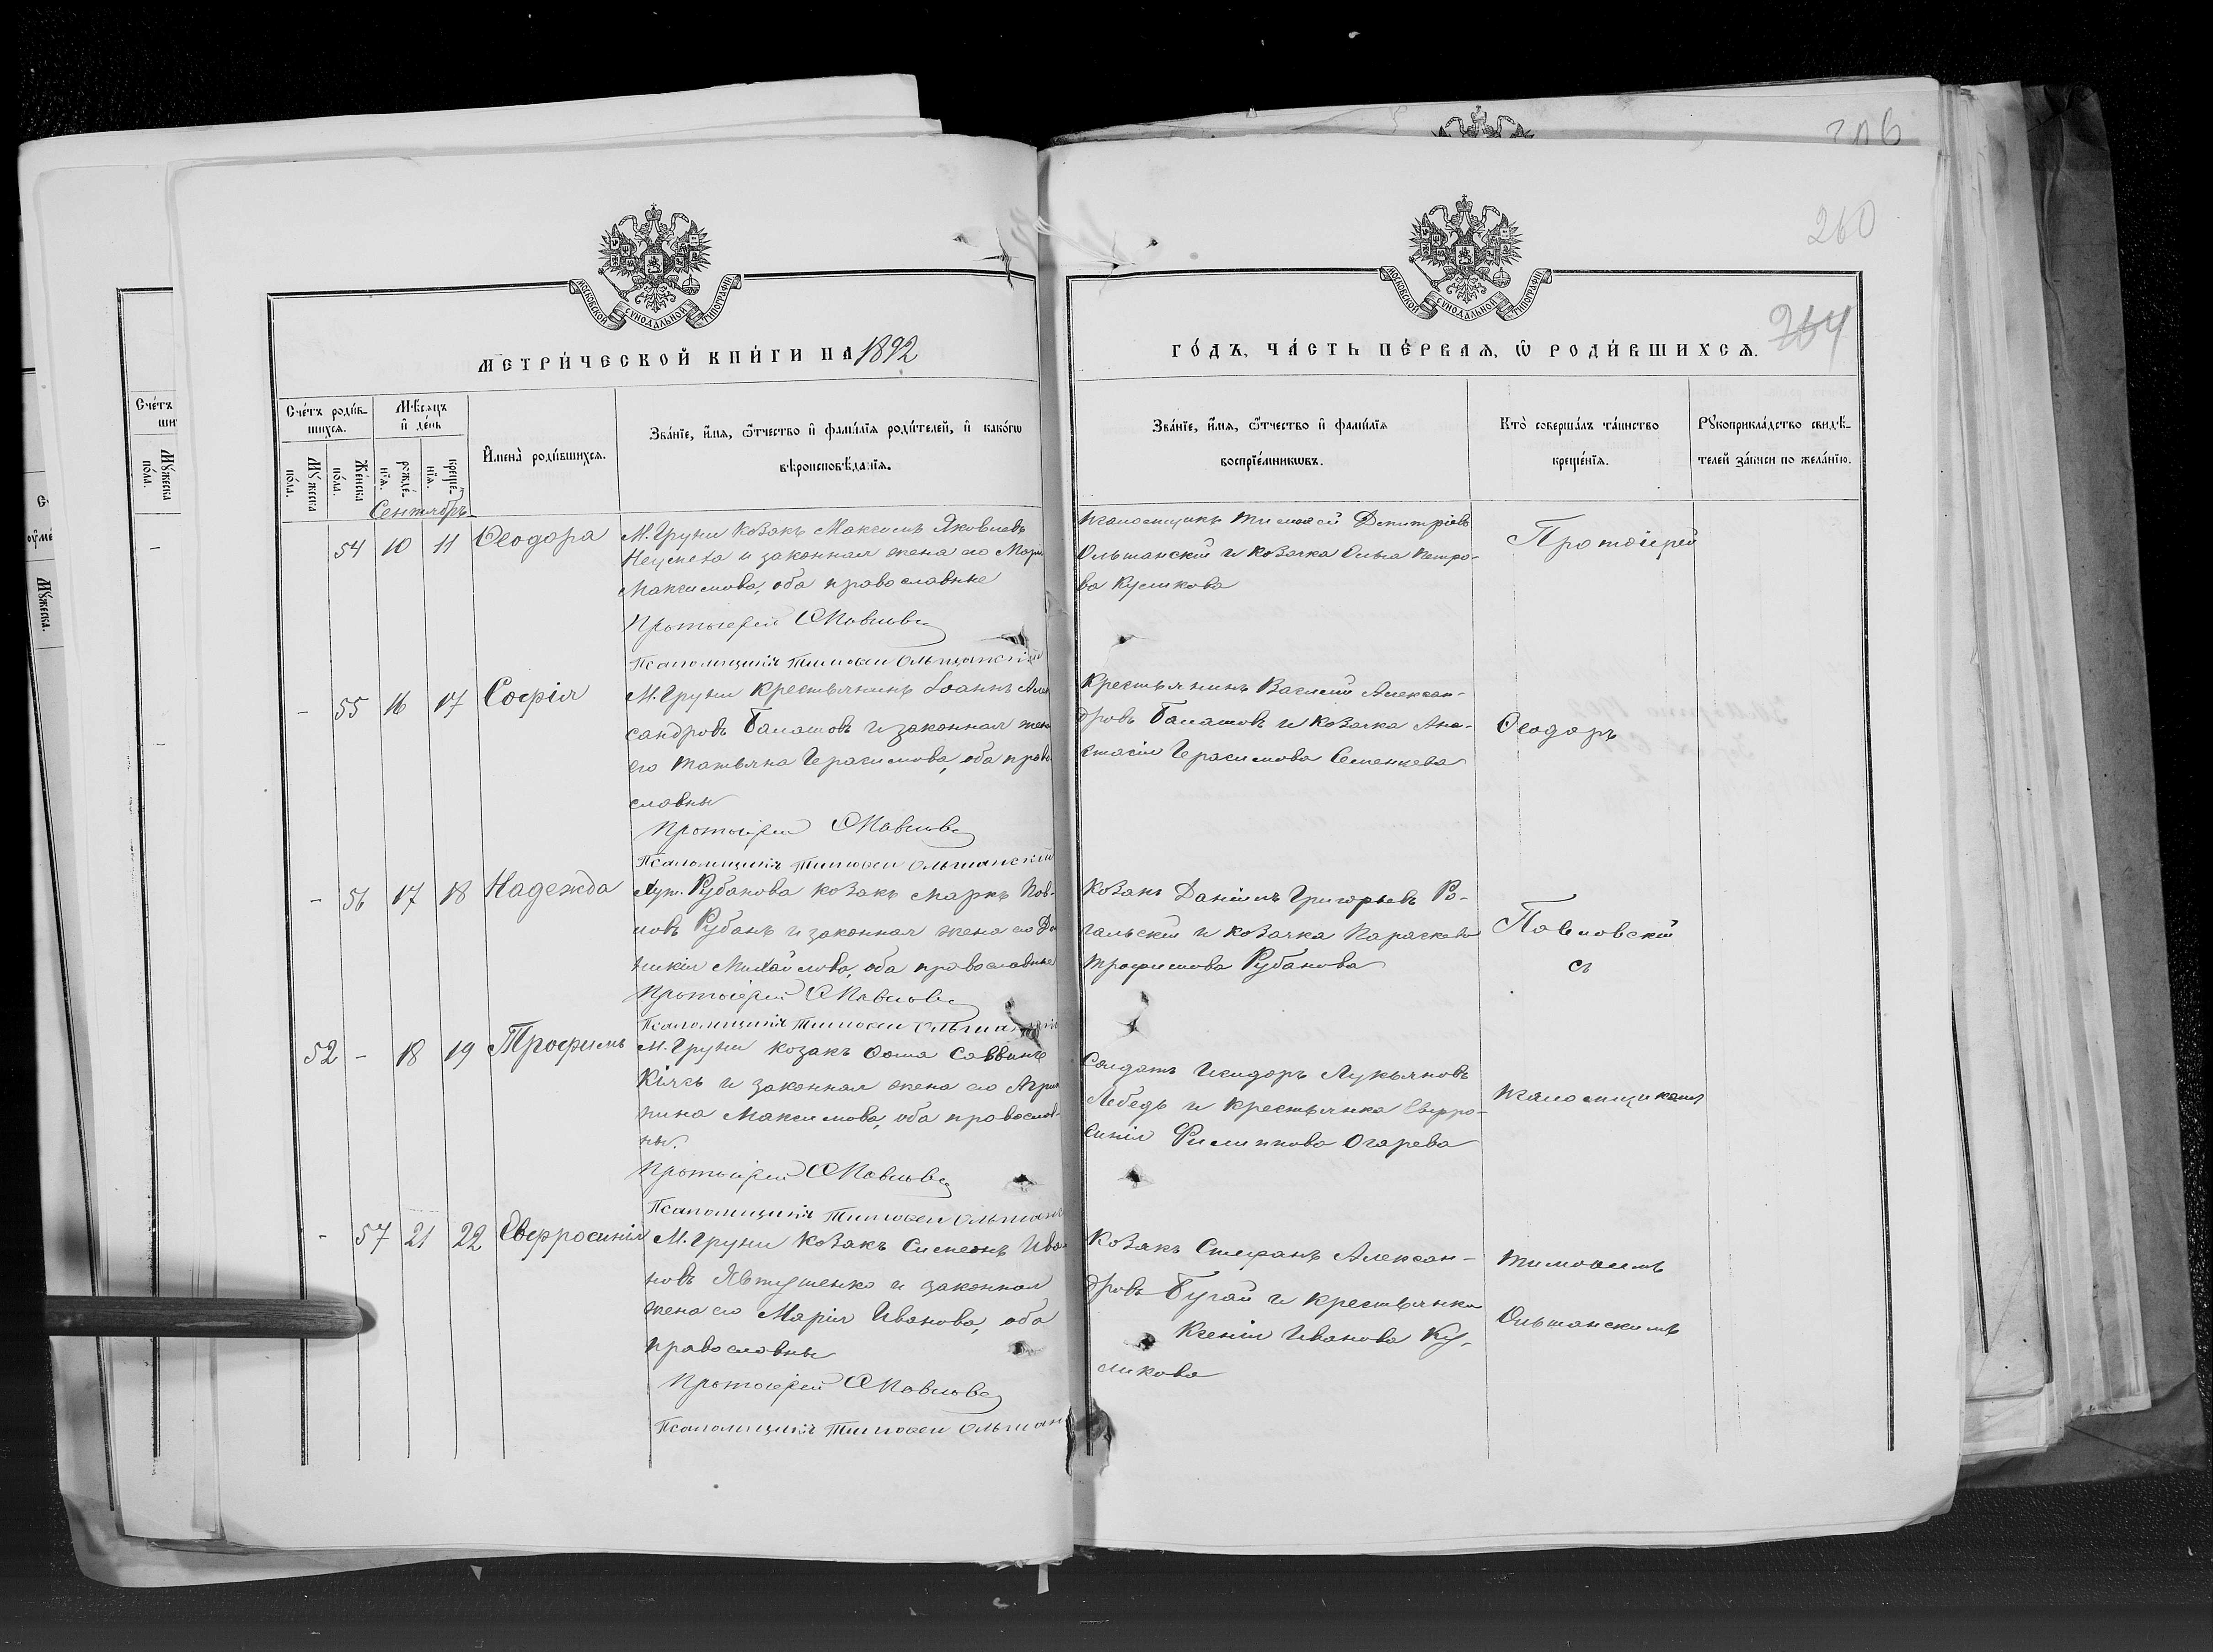 206
260
264
МОСКОВСКОЙ СУНОДАЛЬНОЙ ТИПОГРАФІИ
МОСКОВСКОЙ СУНОДАЛЬНОЙ ТИПОГРАФІИ
МЕТРИ́ЧЕСКОЙ КНИ́ГИ НА 1892
ГО́ДЪ, ЧА́СТЬ ПЕ́РВАЯ, Ѡ РОДИ́ВШИХСЯ.
Сче́тъ роди́вшихся.
Му́жеска по́ла.
Же́нска по́ла.
Мѣ́сяцъ и де́нь
рожде́нїя.
креще́нїя.
Имена̀ роди́вшихся.
Зва́нїе, и́мя, ѻ҆́тчество и фами́лїя роди́телей, и како́гѡ
вѣроисповѣ́данїя.
Зва́нїе, и́мя, ѻ҆́тчество и фами́лїя
воспрїе́мникѡвъ.
Кто̀ соверша́лъ та́инство
креще́нїя.
Рукоприкла́дство свидѣ́-
телей за́писи по жела́нїю.
Сентябрь
54 10 11 Ѳеодора
М. Груни козакъ Максимъ Яковлевъ
и законная жена его
Максимова, оба православные
Протоіерей
Псаломщикъ Тимоѳей Ольшанскій
Псаломщикъ Тимоѳей Димитріевъ
Ольшанскій и козачка Ольга Петро-
ва Куликова
Протоіерей
- 55 16 17 Софія
М. Груни крестьянинъ Іоаннъ Алек
сандровъ Балашовъ и законная жена
его Татьяна Герасимова, оба право
славны
Протоіерей
Псаломщикъ Тимоѳей Ольшанскій
Крестьянинъ Василій Алексан-
дровъ Балашовъ и козачка Ана-
стасія Герасимова
Ѳеодоръ
- 56 17 18 Надежда
Хут. Рубанова козакъ Маркъ Пав-
ловъ Рубанъ и законная жена его До
микія Михайлова, оба православные
Протоіерей
Псаломщикъ Тимоѳей
Козакъ Даніилъ Григорьевъ Ро-
гальскій и козачка Параскева
Трофимова Рубанова
Павловскій
съ
52 - 18 19 Трофимъ
М. Груни козакъ Ѳома Саввинъ
и законная жена его Агрип
пина Максимова, оба православ-
ны.
Протоіерей
Псаломщикъ Тимоѳей Ольшанс
Солдатъ Исидоръ Лукьяновъ
Лебедь и крестьянка Евфро-
синія Филиппова Огарева
псаломщикомъ
- 57 21 22 Евфросинія
М. Груни козакъ Симеонъ Ива
новъ Явтушенко и законная
жена его Марія Иванова, оба
православны
Протоіерей
Псаломщикъ Тимоѳей Ольшан
Козакъ Стефанъ Алексан-
дровъ Бугай и крестьянка
Ксенія Иванова Ку-
ликова
Тимоѳеемъ
Ольшанскимъ